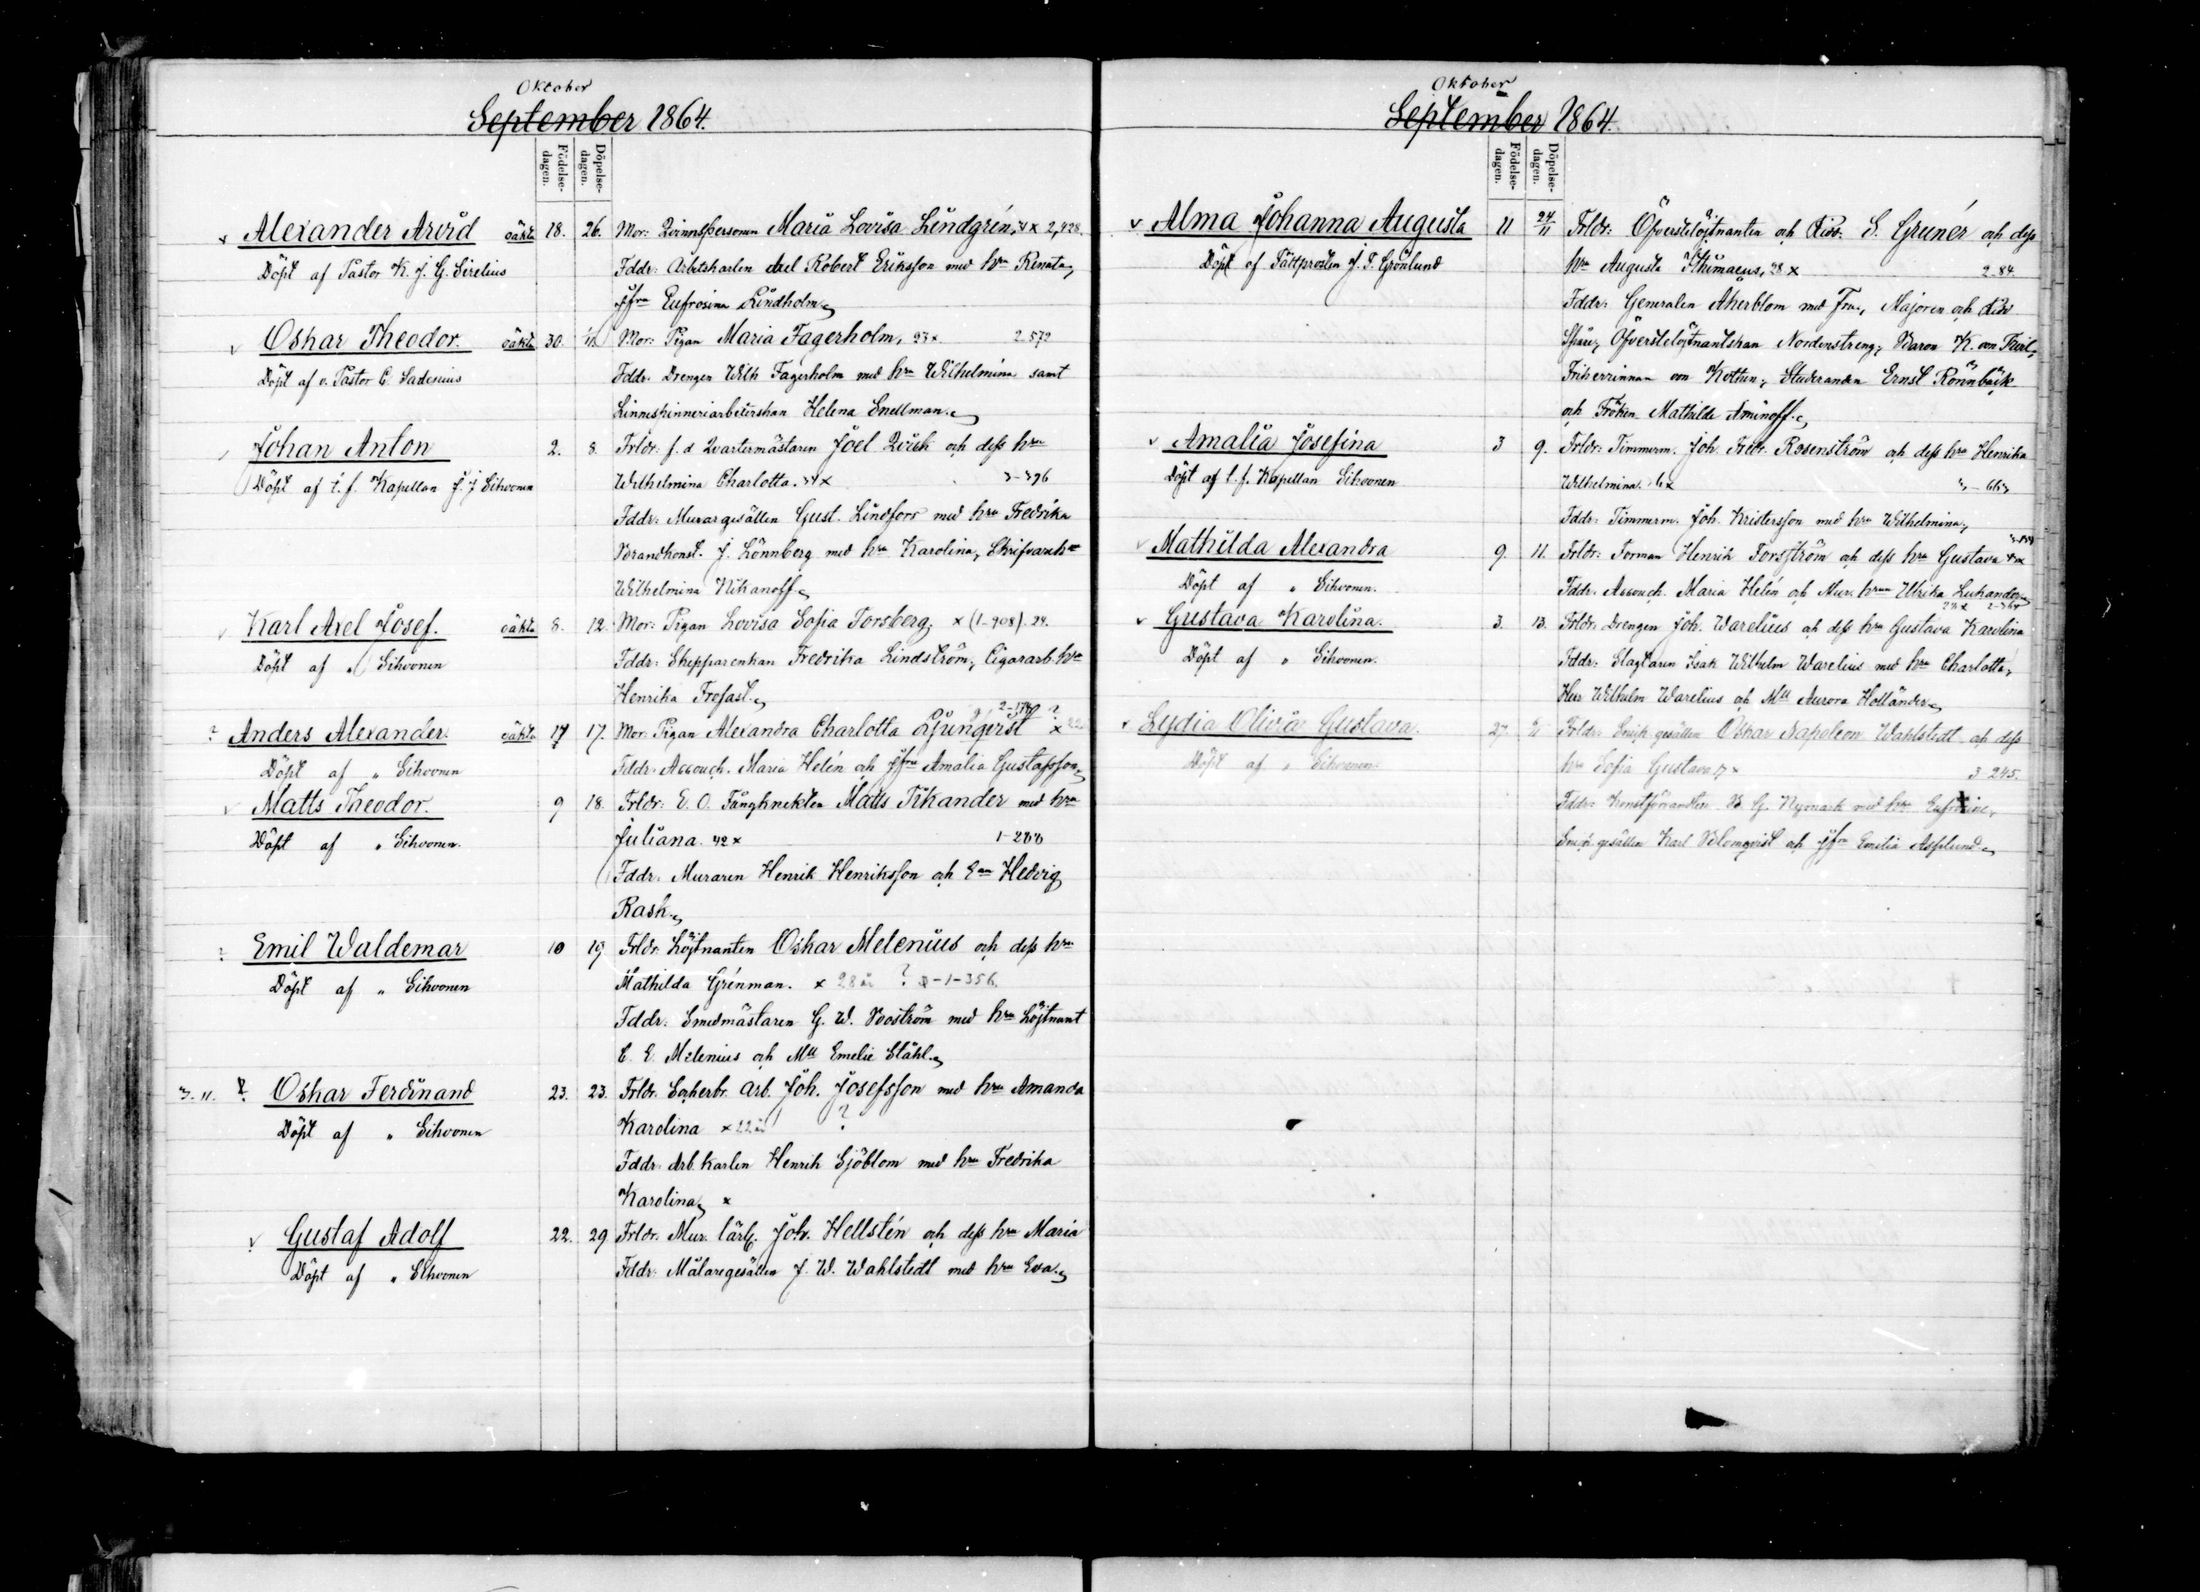 Oktober
September 1864.
Födelse-
dagen.
Döpelse-
dagen.
Alexander Arvid oäkta 18. 26. Mor: Qvinnspersonen Maria Lovisa Lindgrén, x 2,428.
Döpt af Pastor K. J. G. Sirelius Fddr: Arbetskarlen Axel Robert Eriksson med hru Renata,
Jfru Eufrosina Lindholm
Oskar Theodor. oäkta 30. Mor: Pigan Maria Fagerholm, 23 x 2 572
Döpt af v. Pastor C. Sadenius Fddr. Drengen Wilh Fagerholm med hru Wilhelmina samt
Linnespinneriarbeterskan Helena Snellman
Johan Anton 2. 8. Frldr. f. d Qvartermästaren Joel Qvick och dess hru
Döpt af t. f. Kapellan J. J Sihvonen Wilhelmina Charlotta. 34 x 3-396
Fddr: Muraregesällen Gust. Lindfors med hru Fredrika
Brandkonst. J. Lönnberg med hru Karolina,
Wilhelmina Nikanoff
Karl Axel Josef. oäkta 8. 12. Mor: Pigan Lovisa Sofia Forsberg, x (1-908). 24.
Döpt af " Sihvonen Fddr: Skepparenkan Fredrika Lindström, Cigararb. hru
Henrika Trofast
2-178 ?
? Anders Alexander. oäkta 17 17. Mor: Pigan Alexandra Charlotta Ljungqvist x 22
Döpt af " Sihvonen Fddr: Accouch. Maria Helén och Jfru Amalia Gustafsson
Matts Theodor. 9 18. Frldr: E. O. Fångknekten Matts Tikander med hru
Döpt af " Sihvonen. Juliana. 42 x 1-288
Fddr: Muraren Henrik Henriksson och Hedvig
Rask
? Emil Waldemar 10 19 Frldr. Löjtnanten Oskar Melenius och dess hru
Döpt af " Sihvonen Mathilda Grénman. x 28 år ? 1-356
Fddr: Smedmästaren G. W. Boström med hru Löjtnant
C. E. Melenius och Mll Emelie Ståhl
3. 11. ? Oskar Ferdinand 23. 23. Frldr. Sockerbr. arb. Joh. Josefsson med hru Amanda
Döpt af " Sihvonen Karolina x 22 år ?
Fddr: Arb. karlen Henrik Sjöblom med hru Fredrika
Karolina x
Gustaf Adolf 22. 29 Frldr. Mur. lärl. Joh. Hellstén och dess hru Maria
Döpt af " Sihvonen Fddr: Målaregesällen J. W. Wahlstedt med hru Eva
Oktober
September 1864.
Födelse-
dagen.
Döpelse-
dagen.
Alma Johanna Augusta 11 24/11 Frldr: Öfverstelöjtnanten och Ridd: S. Grunér och dess
Döpt af Fältprosten J. F. Grönlund hru Augusta Thimaeus, 28 x 2-84.
Fddr: Generalen Åkerblom med Fru, Majoren och Ridd
Spåre, Öfverstelöjtnantskan Nordenstreng, Baron K. von
Friherrinnan von Kothen, Studeranden Ernst Rönnbäck
och Fröken Mathilde Aminoff
Amalia Josefina 3 9. Frldr: Timmerm. Joh. Fredr. Rosenström och dess hru Henrika
Döpt af t. f. Kapellan Sihvonen Wilhelmina.
Fddr: Timmerm. Joh. Kristersson med hru Wilhelmina,
Mathilda Alexandra 9. 11. Frldr: Forman Henrik Forsström och dess hru Gustava
Döpt af " Sihvonen. Fddr. Accouch. Maria Helén och Mur. hrun Ulrika Lukander
Gustava Karolina. 3. 13. Frldr: Drengen Joh. Warelius och dess hru Gustava Karolina
Döpt af " Sihvonen. Fddr: Slagtaren Isak Wilhelm Warelius med hru Charlotta,
Herr Wilhelm Warelius och Mll Aurora Holländer
Lydia Olivia Gustava. 27. Frldr: Smidesgesällen Oskar Napoleon Wahlstedt och dess
Döpt af " Sihvonen. hru Sofia Gustava x 3 245.
Fddr: Konstförvandten B. G. Nymark med hru Eufrosine,
Smidesgesällen Karl Blomqvist och Jfru Emilia Asplund